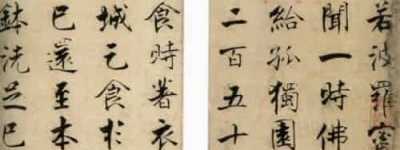 若波羅蜜
聞一時佛
給孤獨園
二百五十
食時著衣
城乞食於
已還至本
鉢洗足已